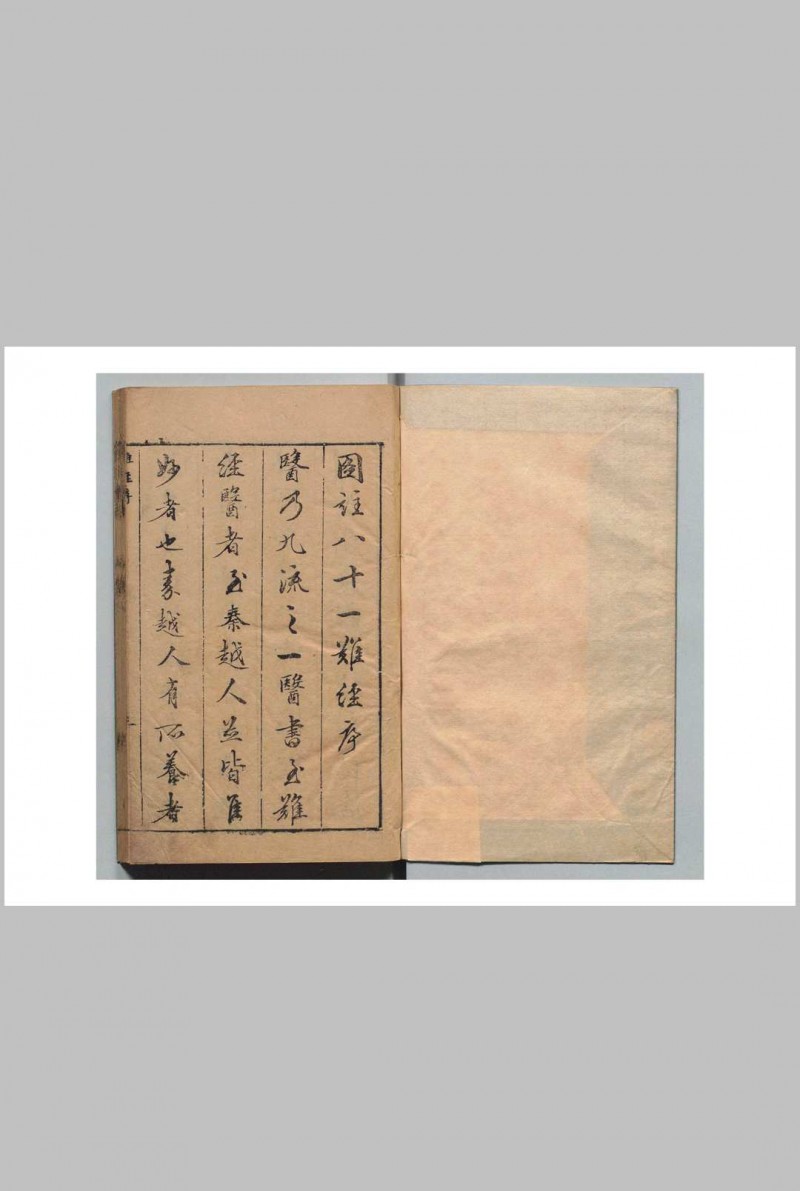 圖註八十一難經序
醫乃九流之一醫書至難
經醫者至秦越人並皆
妙者也秦越人有所養者